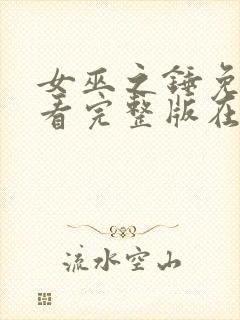 女巫之锤免
看完整版在
流水空山